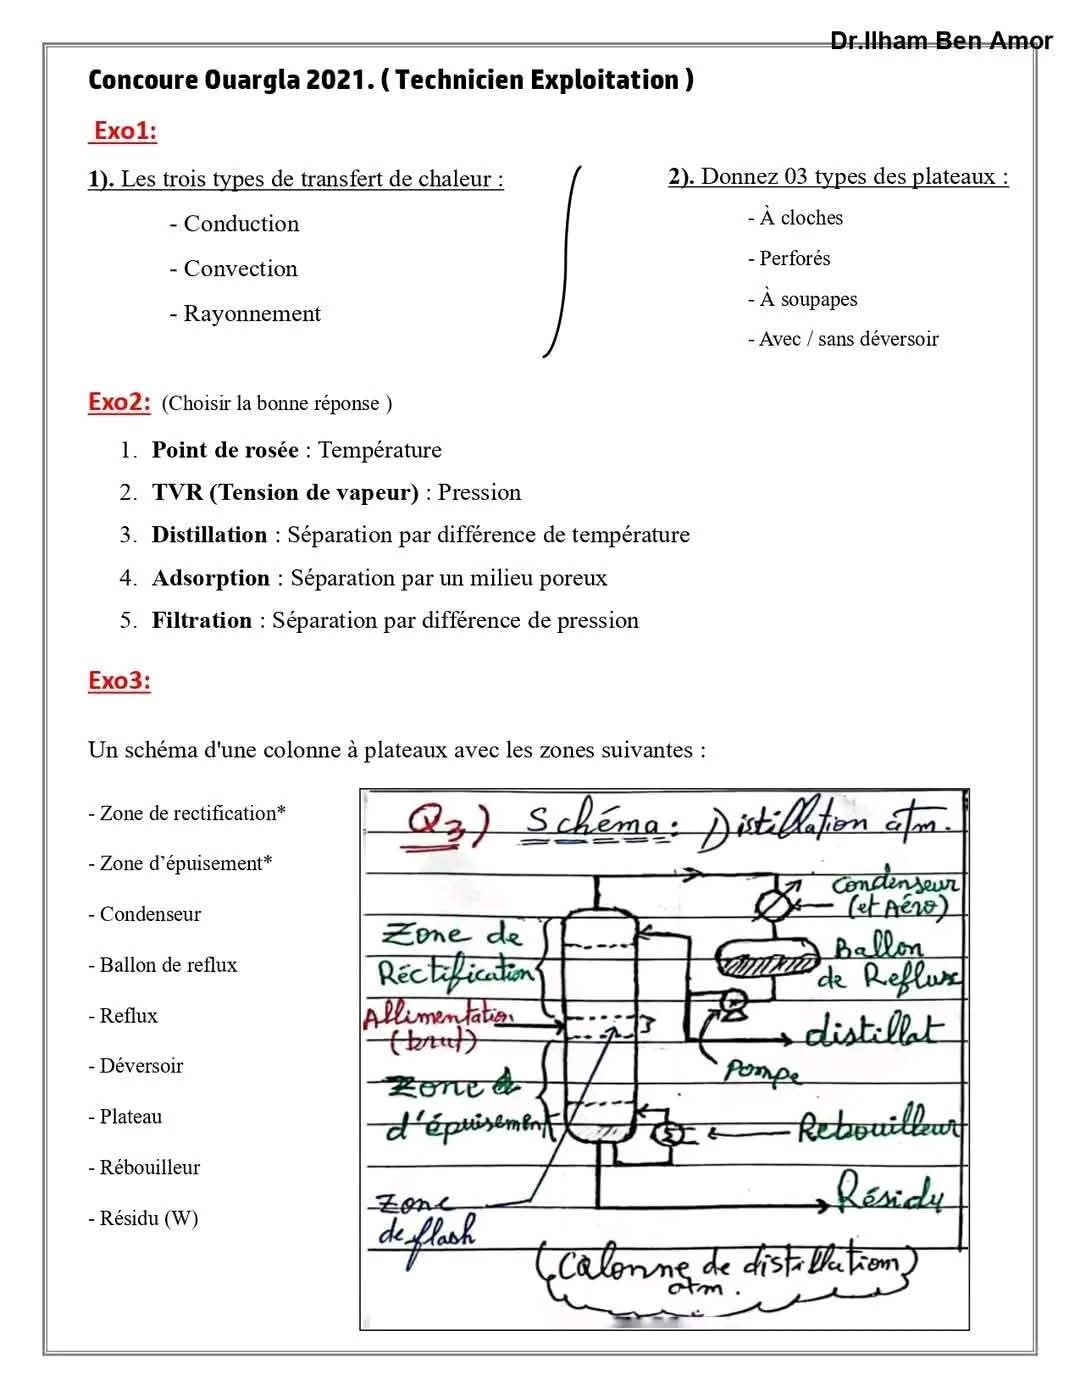 Dr.Ilham Ben Amor
Concoure Ouargla 2021. ( Technicien Exploitation )
Exo1:
1). Les trois types de transfert de chaleur :
- Conduction
- Convection
- Rayonnement
2). Donnez 03 types des plateaux :
- À cloches
- Perforés
- À soupapes
- Avec / sans déversoir
Exo2: (Choisir la bonne réponse )
1. Point de rosée : Température
2. TVR (Tension de vapeur) : Pression
3. Distillation : Séparation par différence de température
4. Adsorption : Séparation par un milieu poreux
5. Filtration : Séparation par différence de pression
Exo3:
Un schéma d'une colonne à plateaux avec les zones suivantes :
- Zone de rectification*
- Zone d'épuisement*
- Condenseur
- Ballon de reflux
- Reflux
- Déversoir
- Plateau
- Rébouilleur
- Résidu (W)
Q3) Schéma: Distillation atm.
Condenseur
(et Aéro)
Zone de
Réctification
Ballon
de Reflux
Allimentation
(brut)
distillat
Pompe
Zone
d'épuisement
Rebouilleur
Résidu
Zone
de flash
(Colonne de distillation)
atm.